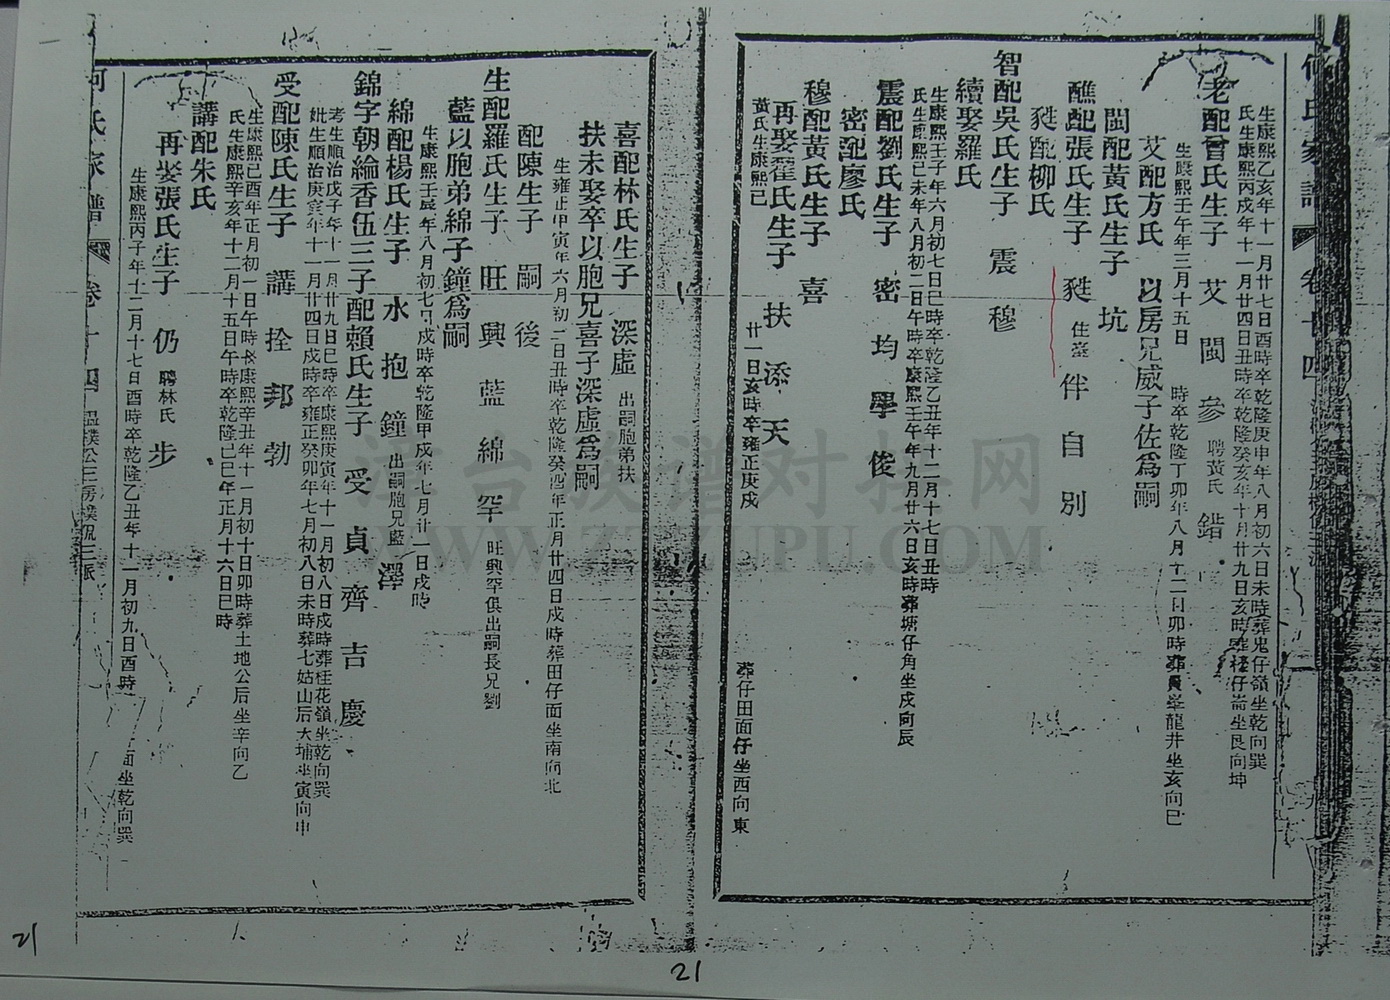 何氏家譜 卷十四
生康熙乙亥年十一月廿七日酉時卒乾隆庚申年八月初六日未時葬鬼仔嶺坐乾向巽
氏生康熙丙戌年十一月廿四日丑時卒乾隆癸亥年十月廿九日亥時葬 仔崙坐艮向坤
老配曾氏生子 艾 閩 參 聘黃氏 錯
生康熙壬午年三月十五日 時卒乾隆丁卯年八月十二日卯時葬 峯龍井坐亥向巳
艾配方氏 以房兄威子佐爲嗣
閩配黃氏生子 坑
醮配張氏生子 毿 住臺 伴 自 別
毿配柳氏
智配吳氏生子 震 穆
續娶羅氏
生康熙壬子年六月初七日巳時卒乾隆乙丑年十二月十七日丑時
氏生康熙己未年八月初二日午時卒康熙壬午年九月廿六日亥時葬塘仔角坐戌向辰
震配劉氏生子 密 均 學 俊
密配廖氏
穆配黃氏生子 喜
再娶翟氏生子 扶 添 天
黃氏生康熙己 廿一日亥時卒雍正庚戌 葬仔田面仔坐西向東
喜配林氏生子 深虛 出嗣胞弟扶
扶未娶卒以胞兄喜子深虛爲嗣
生雍正甲寅年六月初二日丑時卒乾隆癸酉年正月廿四日戌時葬田仔面坐南向北
配陳生子 嗣 後
生配羅氏生子 旺 興 藍 綿 罕 旺興罕俱出嗣長兄劉
藍以胞弟綿子鐘爲嗣
生康熙壬 年八月初七日戌時卒乾隆甲戌年七月廿一日戌時
綿配楊氏生子 水 抱 鐘 出嗣胞兄藍 澤
錦字朝綸香伍三子配賴氏生子 受 貞 齊 吉 慶
考生順治戊子年十一月廿九日巳時卒康熙庚寅年十一月初八日戌時葬桂花嶺坐乾向巽
妣生順治庚寅年十一月廿四日戌時卒雍正癸卯年七月初八日未時葬七姑山后大埔坐寅向申
受配陳氏生子 講 拴 邦 勃
生康熙己酉年正月初一日午時卒康熙辛丑年十一月初十日卯時葬土地公后坐辛向乙
氏生康熙辛亥年十二月十五日午時卒乾隆己巳年正月十六日巳時
講配朱氏
再娶張氏生子 仍 聘林氏 步
生康熙丙子年十二月十七日酉時卒乾隆乙丑年十一月初九日酉時 面坐乾向巽
何氏家譜 卷十四 溫樸公三房樸 三派
漳台族谱对接网
WWW.ZTZUPU.COM
21
21